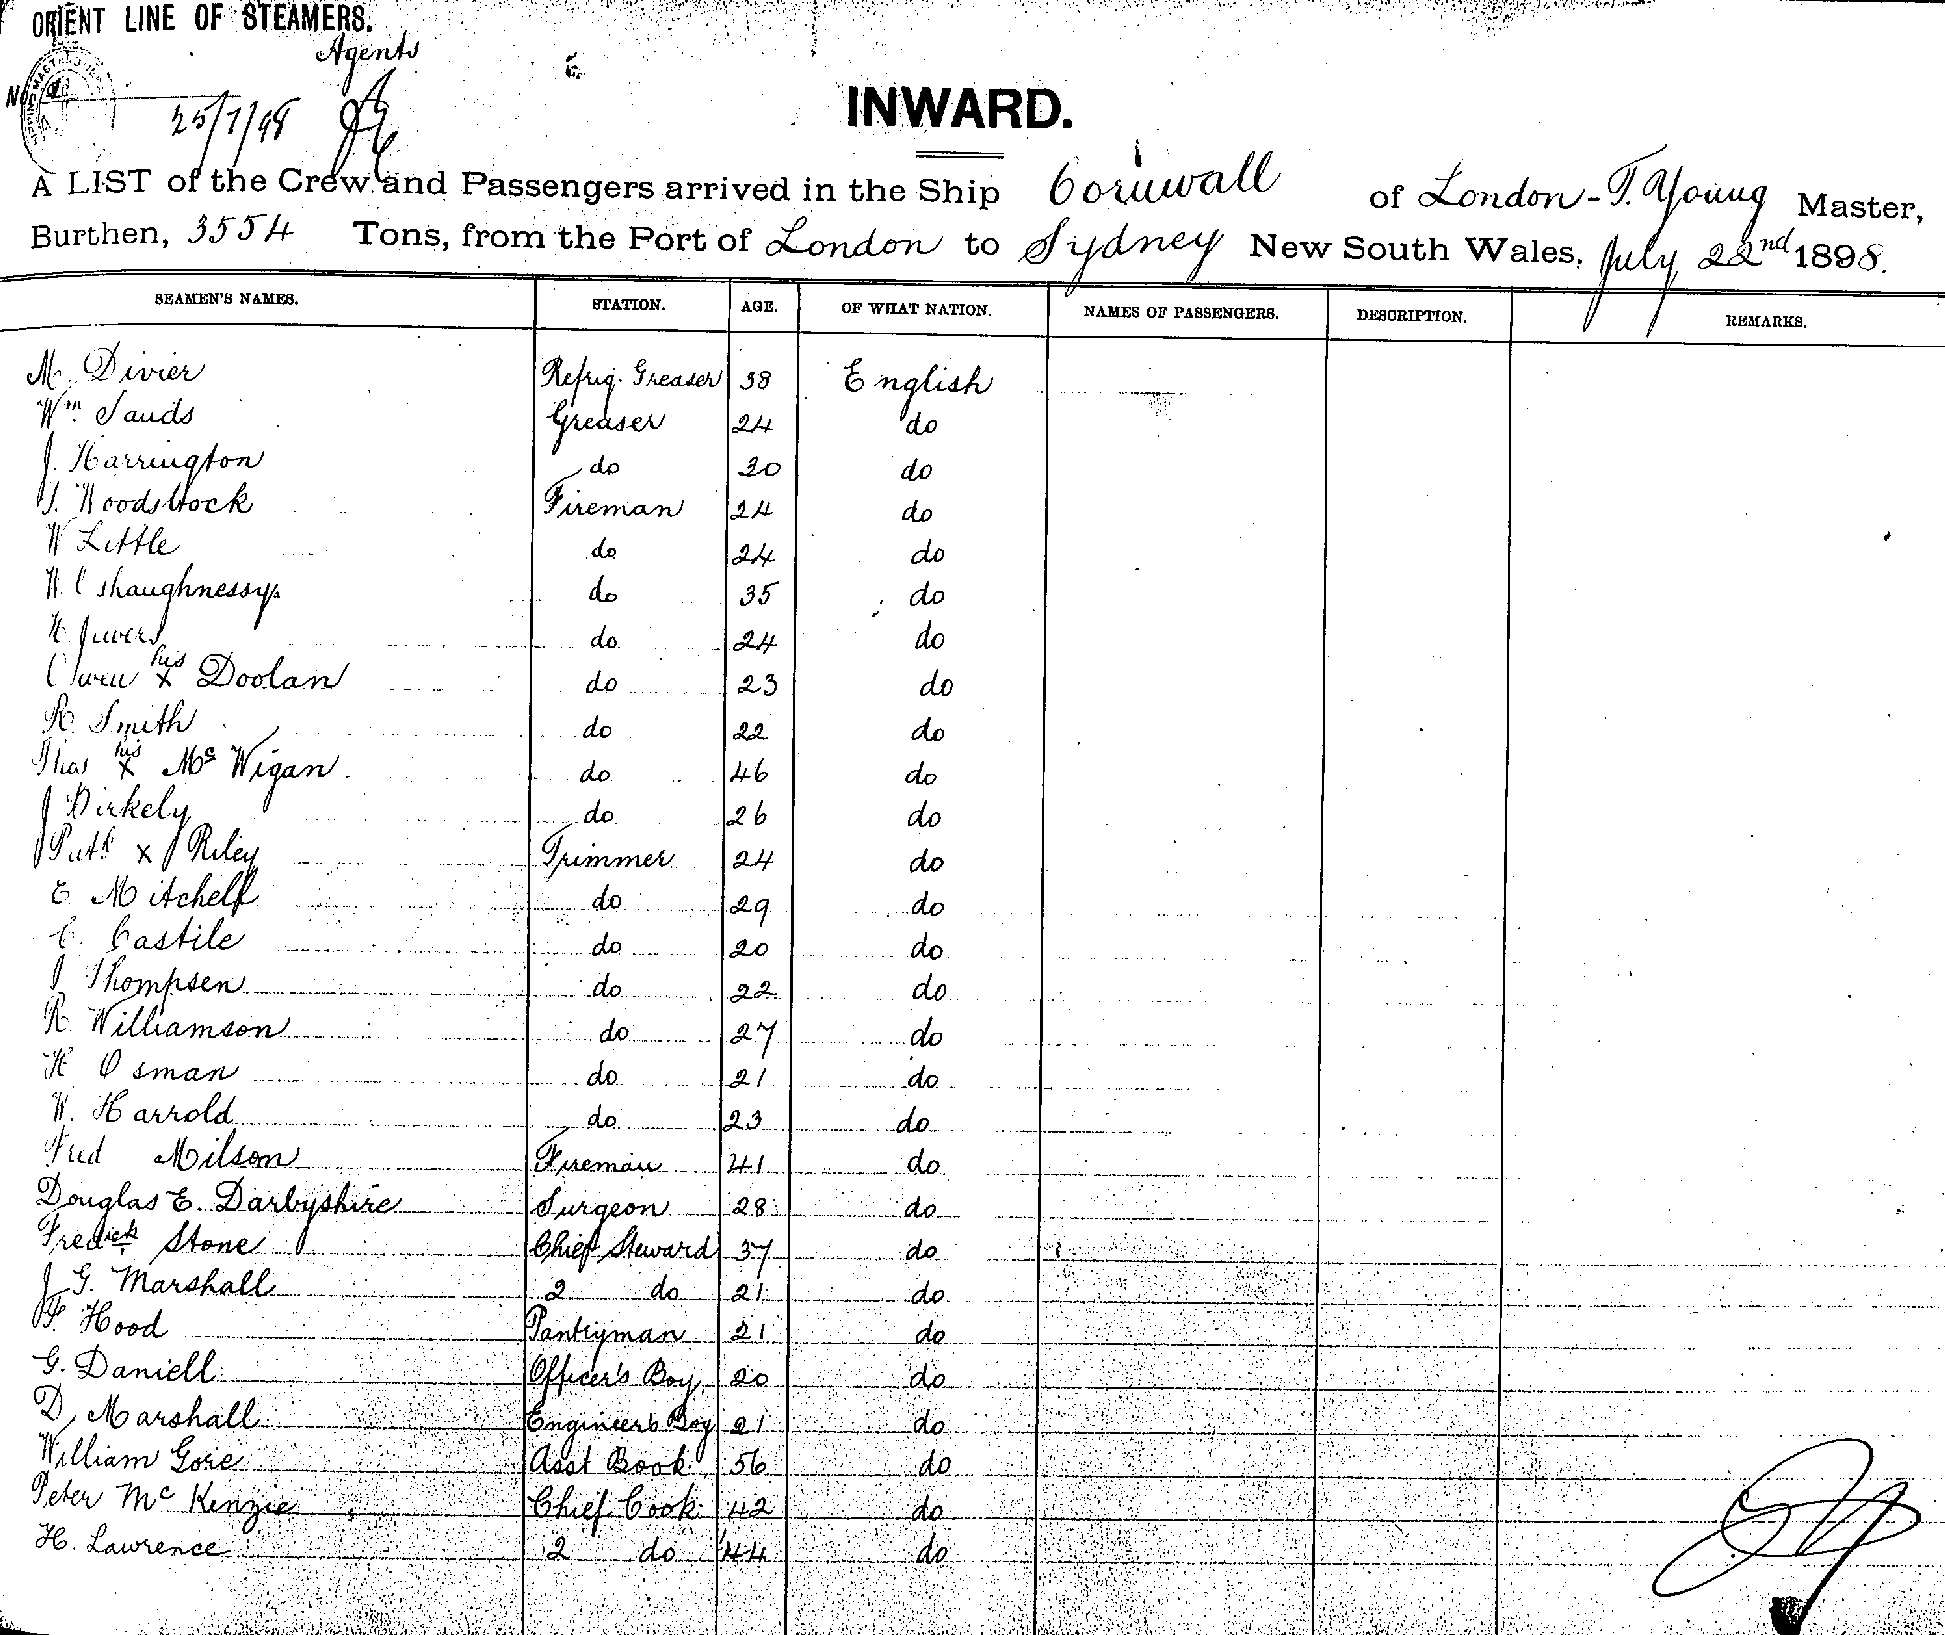 ORIENT LINE OF STEAMERS.
Agents
No.
25/7/98
INWARD.
A LIST of the Crew and Passengers arrived in the Ship Cornwall of London - T. Young Master,
Burthen, 3554 Tons, from the Port of London to Sydney New South Wales, July 22nd 1898.
SEAMEN'S NAMES. STATION. AGE. OF WHAT NATION. NAMES OF PASSENGERS. DESCRIPTION. REMARKS.
M. Divier Refrig. Greaser 38 English
Wm. Sands Greaser 24 do
J. Harrington do 30 do
J. Woodstock Fireman 24 do
W Little do 24 do
W. O'shaughnessy do 35 do
H Juvers do 24 do
Owen his x Doolan do 23 do
R Smith do 22 do
Thos his x Mc Wigan do 46 do
J Birkely do 26 do
Patk x Riley Trimmer 24 do
E Mitchell do 29 do
C. Castile do 20 do
J Thompsen do 22 do
R Williamson do 27 do
H Osman do 21 do
W. Harrold do 23 do
Fred Milsom Fireman 41 do
Douglas E. Darbyshire Surgeon 28 do
Fredick Stone Chief Steward 37 do
J G. Marshall 2 do 21 do
F Hood Pantryman 21 do
G. Daniell Officer's Boy 20 do
D. Marshall Engineer's Boy 21 do
William Gore Asst Book 56 do
Peter Mc Kenzie Chief Cook 42 do
H. Lawrence 2 do 44 do